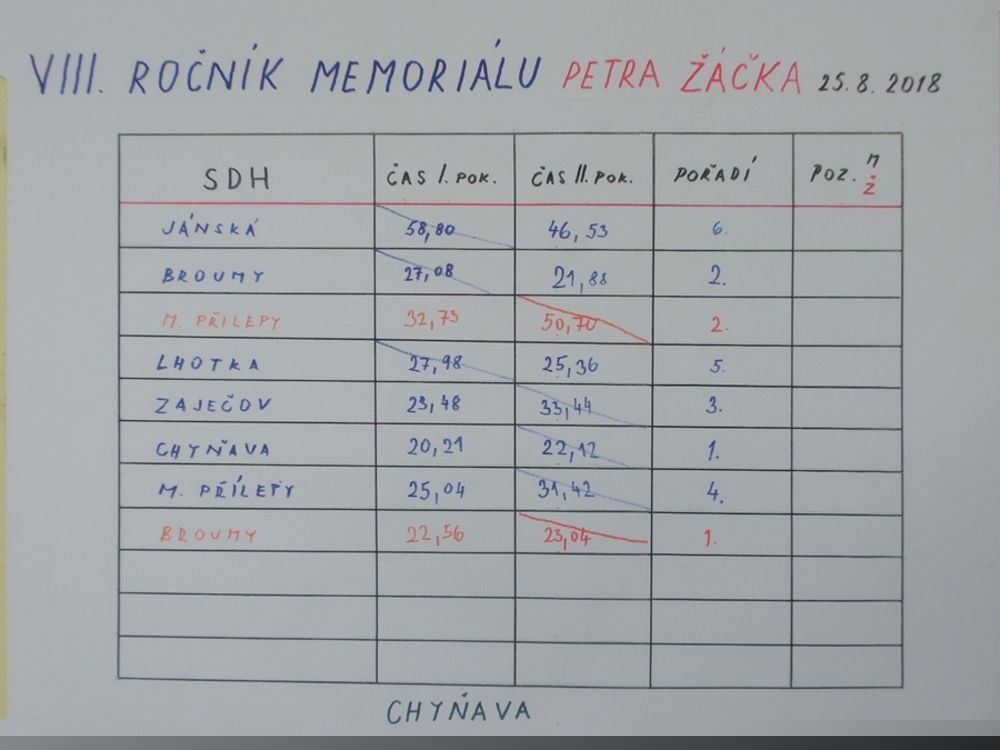 VIII. ROČNÍK MEMORIÁLU PETRA ŽÁČKA 25.8.2018
SDH ČAS I. POK. ČAS II. POK. POŘADÍ POZ. M Ž
JÁNSKÁ 58,80 46,53 6.
BROUMY 27,08 21,88 2.
M. PŘÍLEPY 32,73 50,70 2.
LHOTKA 27,98 25,36 5.
ZAJEČOV 23,48 33,44 3.
CHYŇAVA 20,21 22,12 1.
M. PŘÍLEPY 25,04 31,42 4.
BROUMY 22,56 23,04 1.
CHYŇAVA